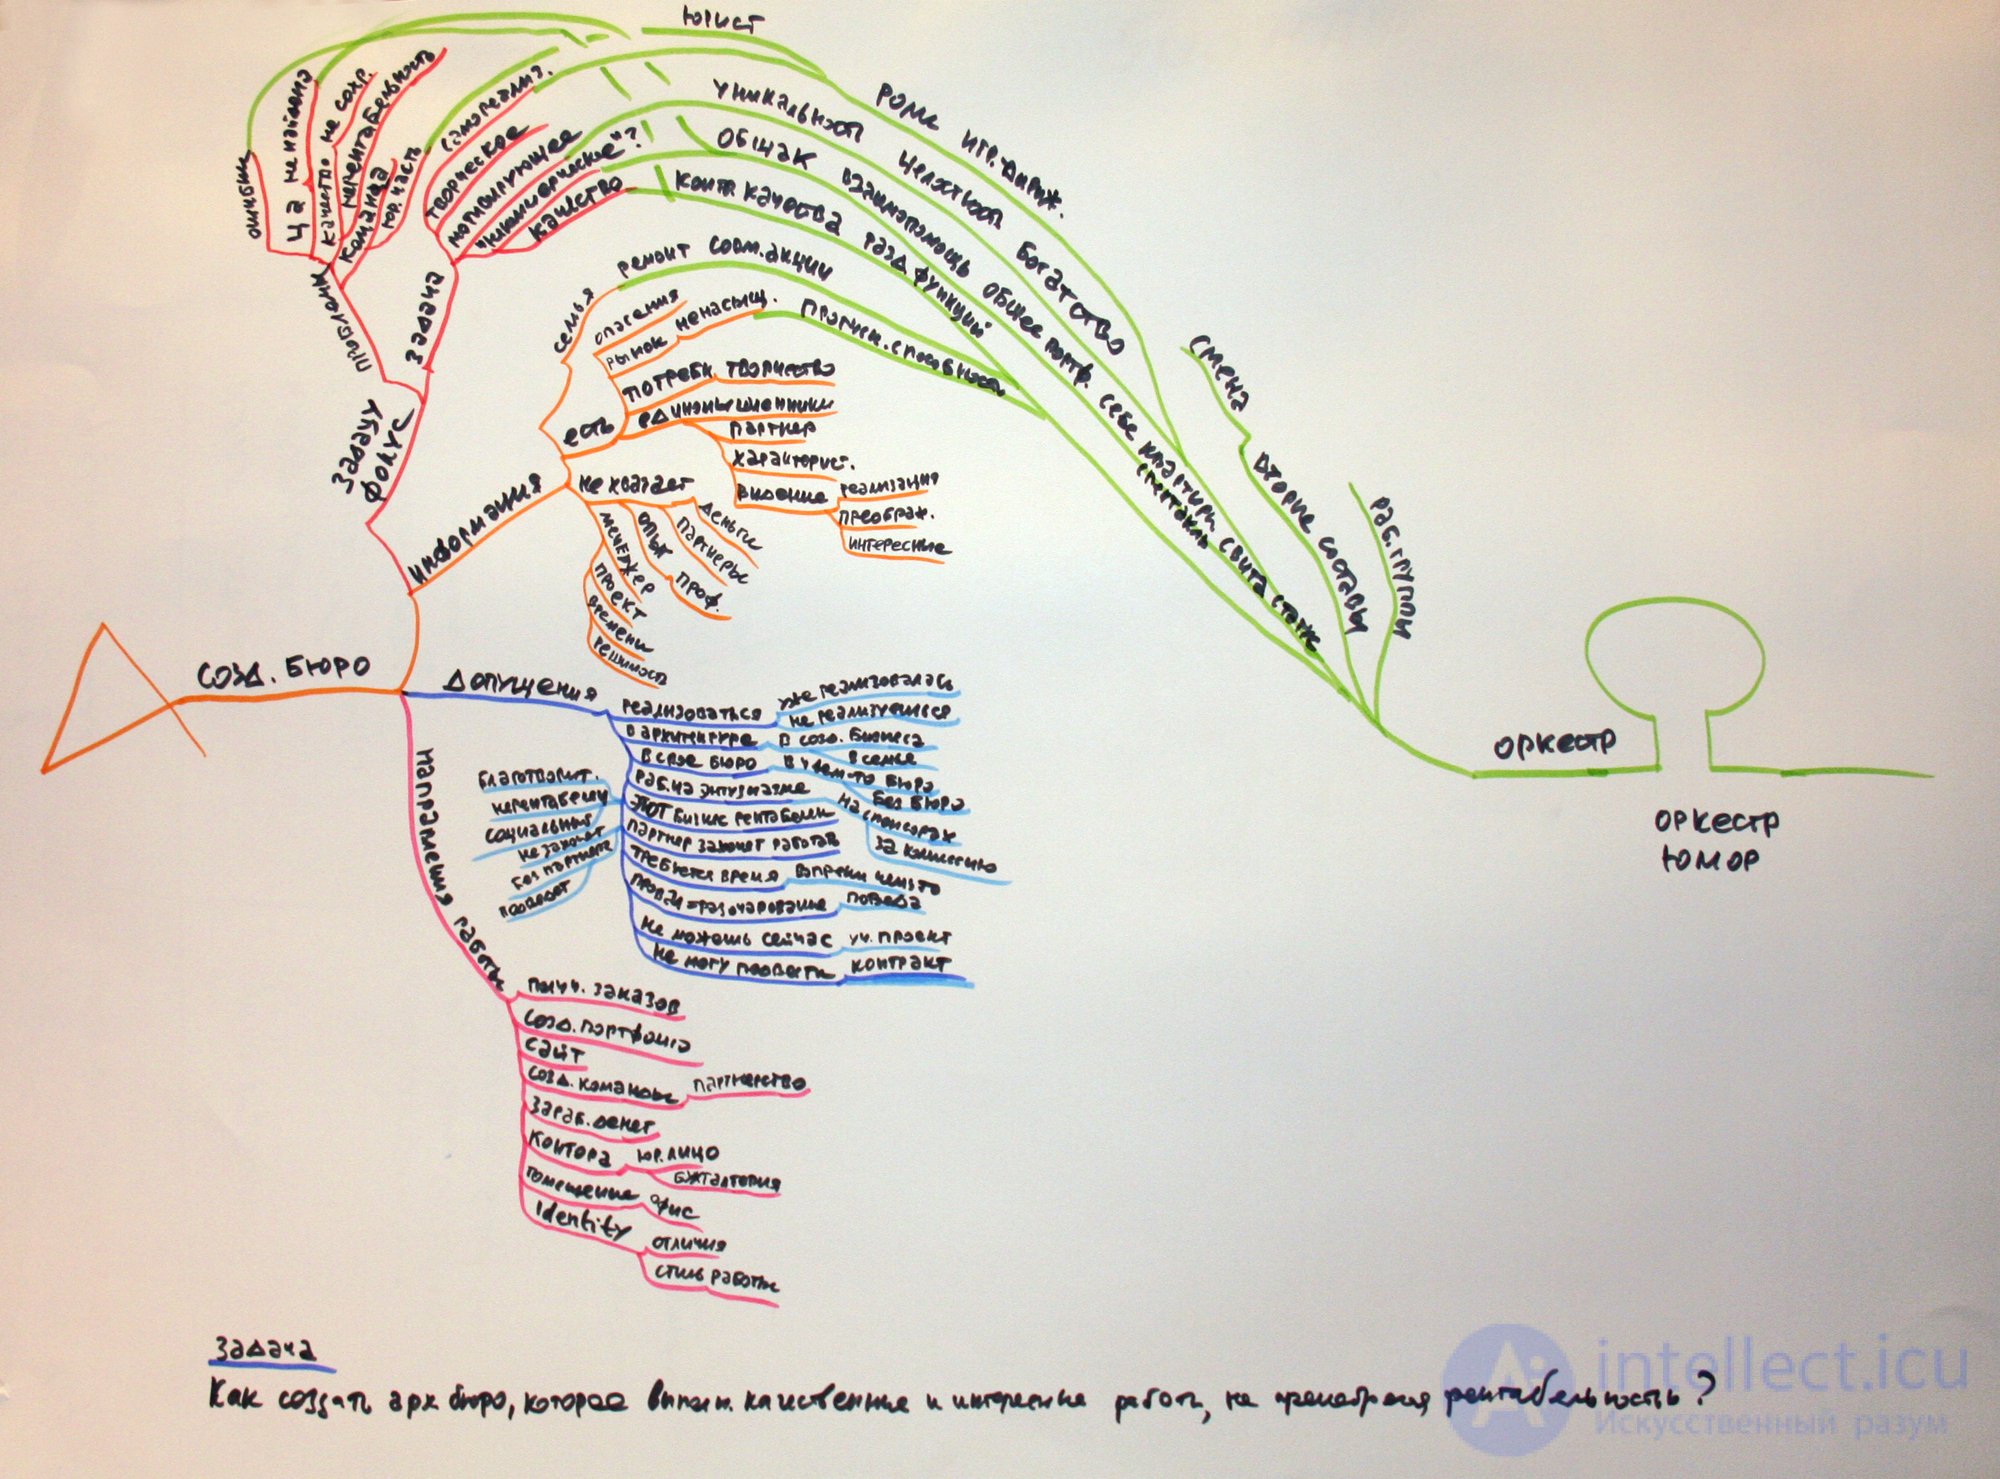 юрист
роли игр. дириж.
уникальность целостность богатство
общак взаимопомощь общее портф. себе квартири свита статус
контр. качества разд функций спектакль
ремонт совм. акции
смена вторые составы
раб. группы
оркестр
оркестр
юмор
ошибки
ЦА не найдена
качество не сохр.
нерентабельность
команда
юр. часть
проблемы
самореализ.
творческое
мотивирующее
"некоммерческое"?
качество
задача
задачу
фокус
семья
опасения
рынок ненасыщ.
потребн. творчество
есть единомышленники
партнер
характерист.
видение реализация
преображ.
интересные
информация
не хватает деньги
партнеры
опыт проф.
менеджер
проект
времени
решимость
созд. бюро
допущения
реализоваться уже реализовалась
не реализуешься
в архитектуре в созд. бизнеса
в семье
в свое бюро в чьем-то бюро
без бюро
раб. на энтузиазме на спонсорах
за комиссию
этот бизнес рентабелен
партнер захочет работать
требуется время вопреки чему-то
провал=разочарование победа
не можешь сейчас уч. проект
не могу провести контракт
благотворит.
нерентабельн
социальный
не захочет
без партнера
направления работы
получ. заказов
созд. портфолио
сайт
созд. команды партнерство
зараб. денег
контора юр. лицо
бухгалтерия
помещение офис
identity
отличия
стиль работы
задача
Как создать арх бюро, которое выполн. качественные и интересные работы, не пренебрегая рентабельностью?
intellect.icu
Искусственный разум